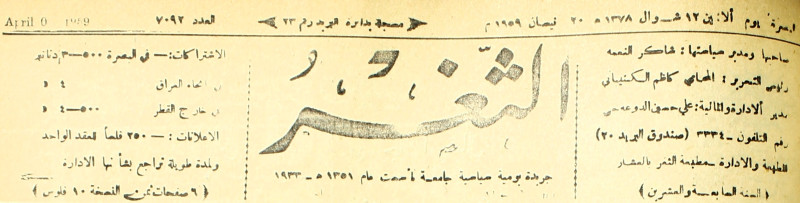 البصرة يوم ألاثنين ١٢ شوال ١٣٧٨ ه ٢٠ نيسان ١٩٥٩ م
مسجلة بدائرة البريد رقم ٢٣
العدد ٧٠٩٢
April
صاحبها ومدير سياستها : شاكر النعمه
رئيس التحرير : المحامي كاظم
مدير ألادارة والمالية : علي حسين
رقم التلفون – ٣٣٣٤ (صندوق البريد ٢٠)
والادارة – مطبعة الثغر بالعشار
( السنة السابعة والعشرين )
الثغر
جريدة يومية سياسية جامعة تأسست عام ١٣٥١ ه – ١٩٣٣
الاشتراكات : – في البصرة ٥٠٠–٣ دنانير
انحاء العراق ٤ »
خارج القطر ٥٠٠–٤ »
الاعلانات : – ٢٥٠ فلساً للعقد الواحد
ولمدة طويلة تراجع بشأنها الادارة
( ٦ صفحات ثمن النسخة ١٠ فلوس )